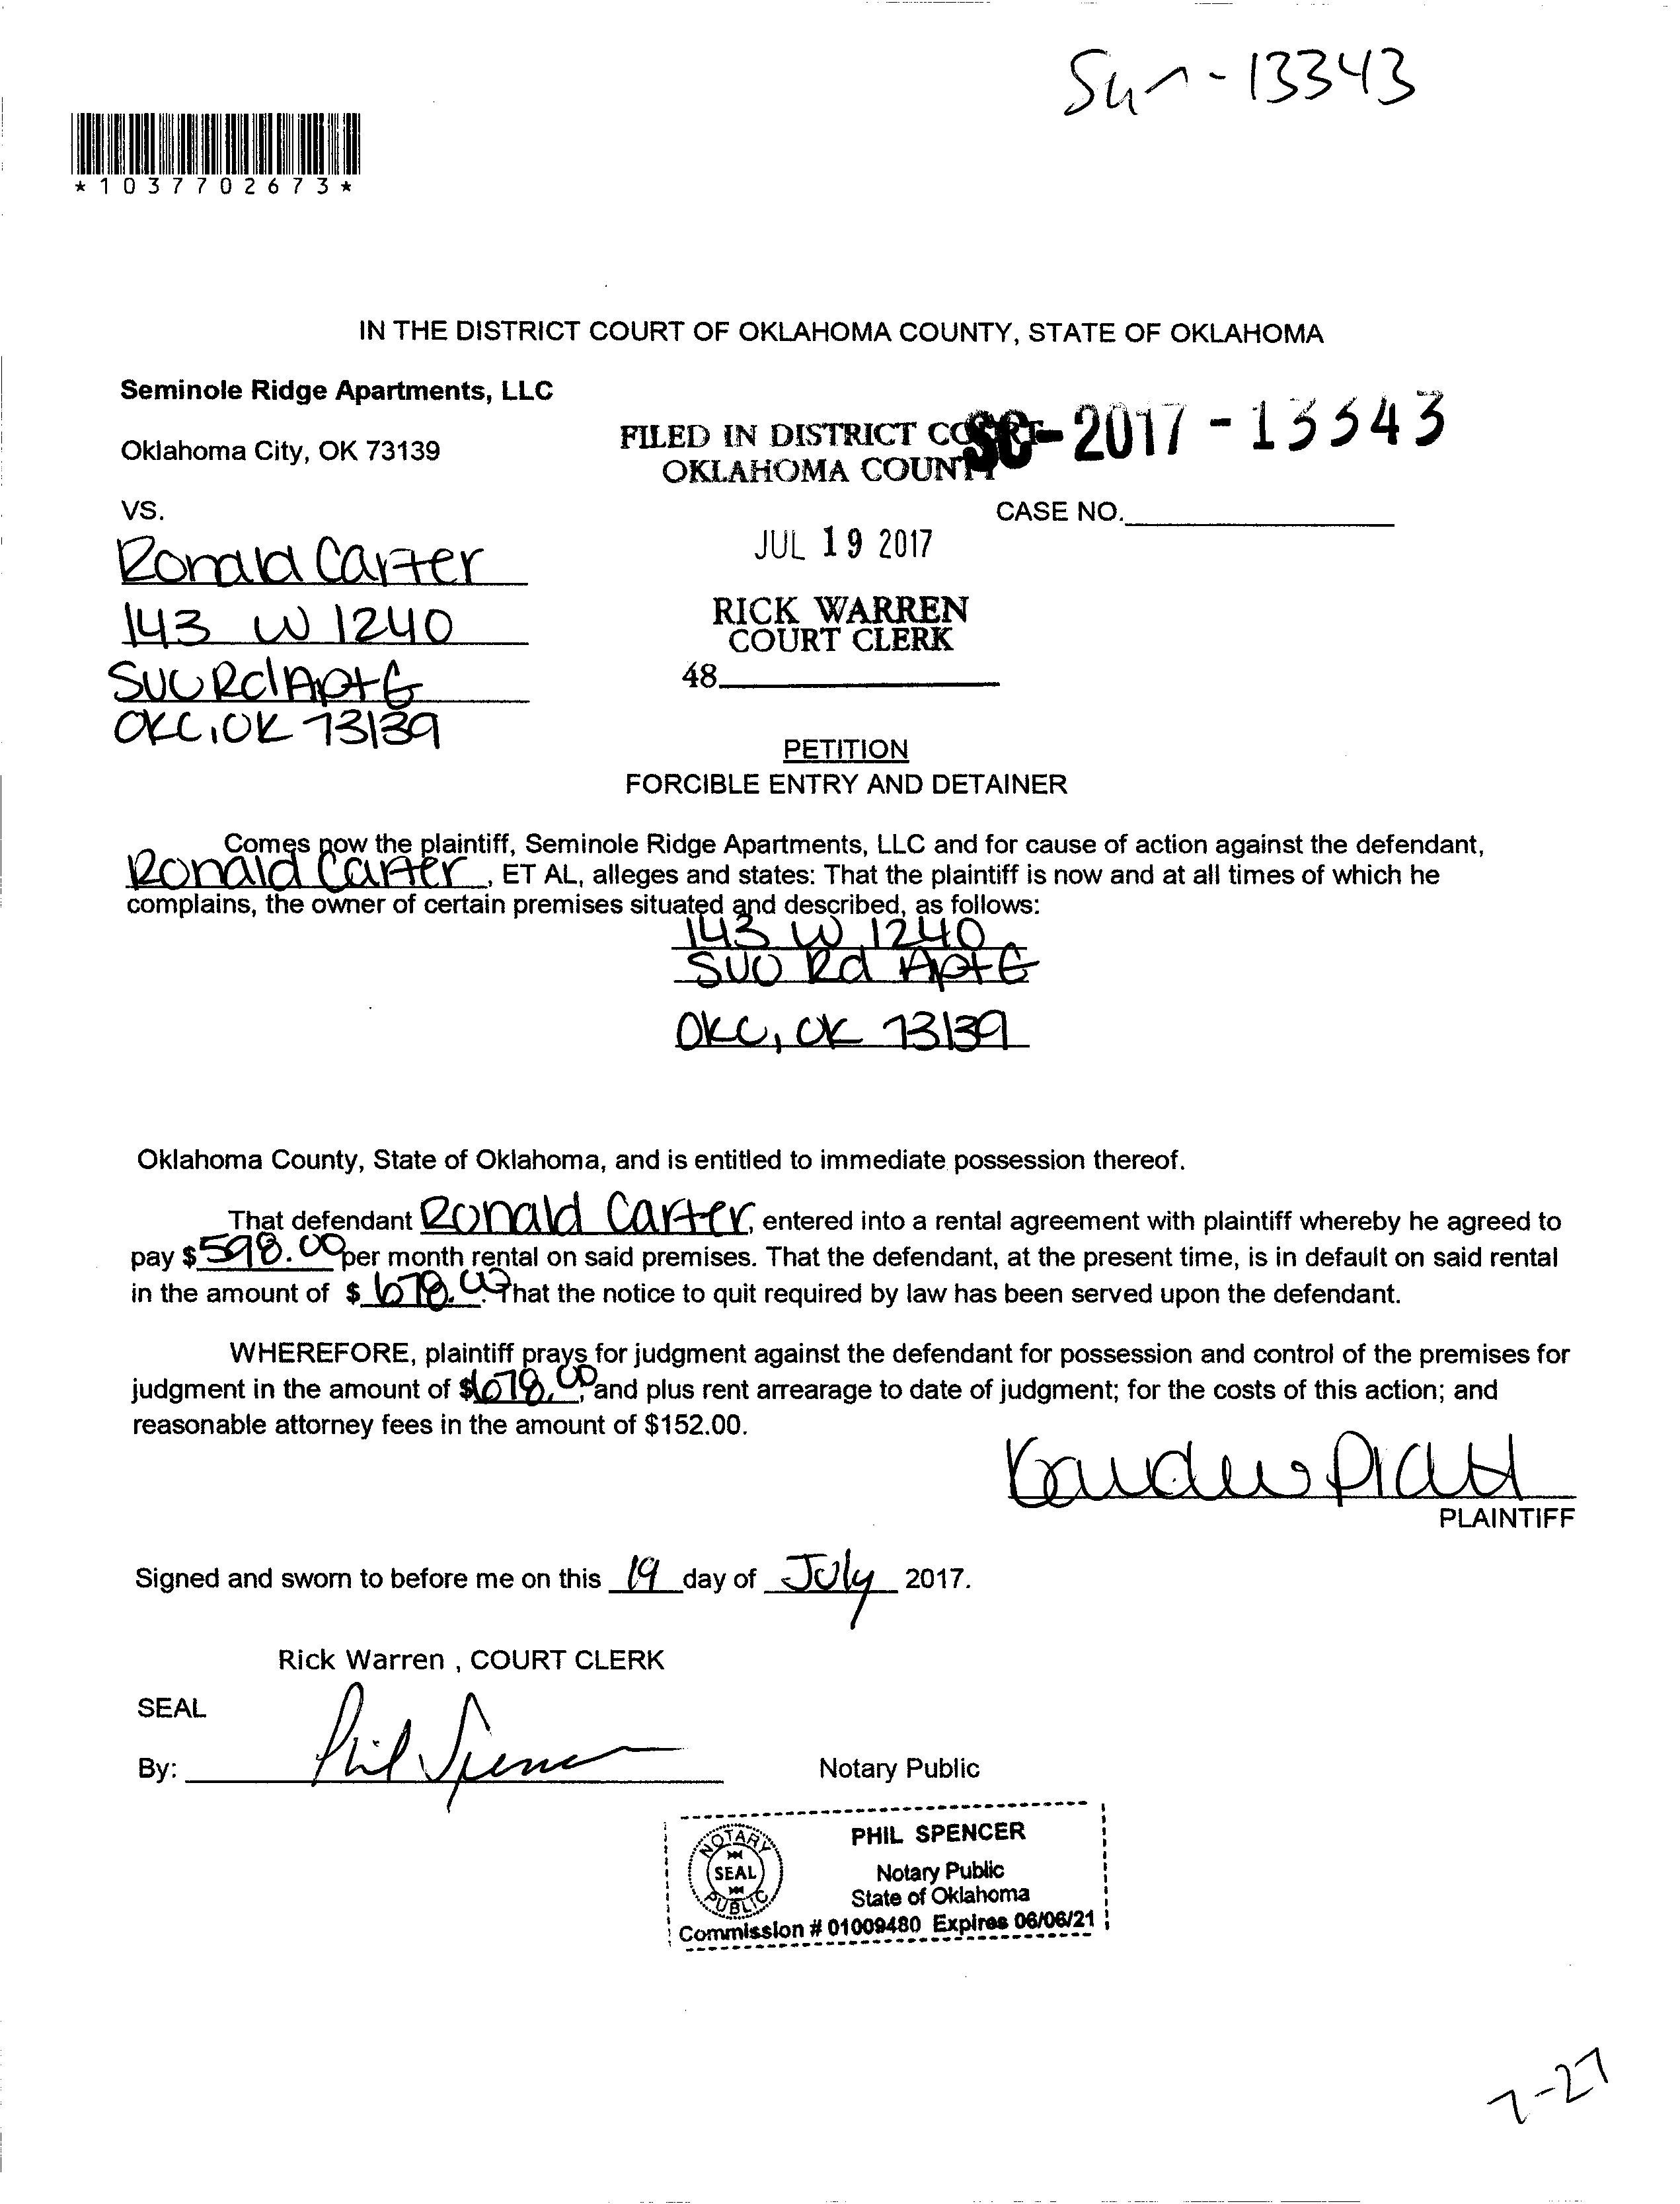 Sun-13343
*1037702673*
IN THE DISTRICT COURT OF OKLAHOMA COUNTY, STATE OF OKLAHOMA
Seminole Ridge Apartments, LLC
Oklahoma City, OK 73139
FILED IN DISTRICT COURT
OKLAHOMA COUNTY
SC-2017-13343
VS.
CASE NO.
JUL 19 2017
Ronald Carter
143 W 1240
RICK WARREN
COURT CLERK
Rd Apt G
48
OKC, OK 73139
PETITION
FORCIBLE ENTRY AND DETAINER
Comes now the plaintiff, Seminole Ridge Apartments, LLC and for cause of action against the defendant,
Ronald Carter, ET AL, alleges and states: That the plaintiff is now and at all times of which he
complains, the owner of certain premises situated and described, as follows:
143 W 1240
Rd Apt G
OKC, OK 73139
Oklahoma County, State of Oklahoma, and is entitled to immediate possession thereof.
That defendant Ronald Carter, entered into a rental agreement with plaintiff whereby he agreed to
pay $598.00 per month rental on said premises. That the defendant, at the present time, is in default on said rental
in the amount of $678.00. That the notice to quit required by law has been served upon the defendant.
WHEREFORE, plaintiff prays for judgment against the defendant for possession and control of the premises for
judgment in the amount of $678.00, and plus rent arrearage to date of judgment; for the costs of this action; and
reasonable attorney fees in the amount of $152.00.
PLAINTIFF
Signed and sworn to before me on this 19 day of July 2017.
Rick Warren , COURT CLERK
SEAL
By: Phil Spencer
Notary Public
NOTARY
SEAL
PUBLIC
PHIL SPENCER
Notary Public
State of Oklahoma
Commission # 01009480 Expires 06/06/21
7-27